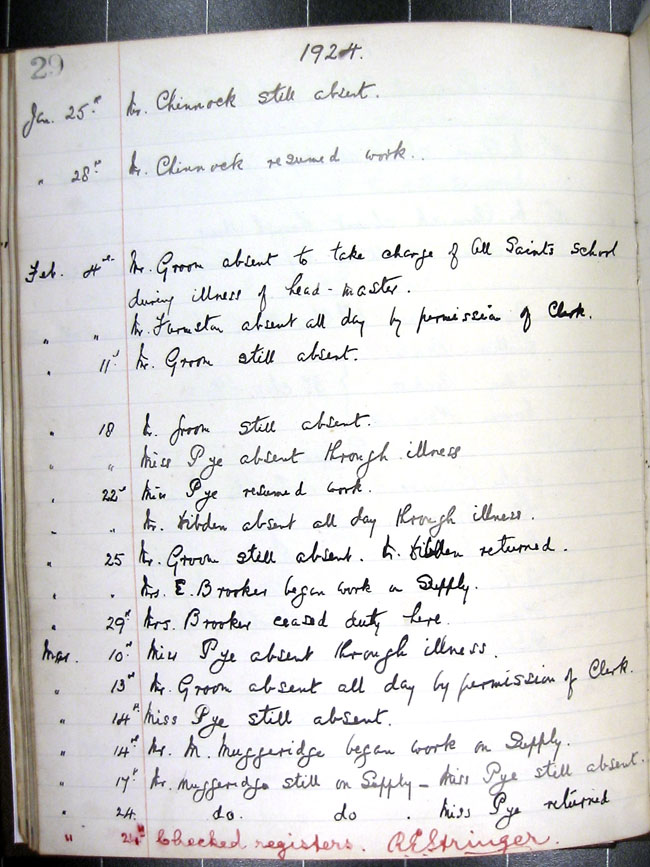 29
1924.
Jan. 25th Mr. Chinnock still absent.
" 28th Mr. Chinnock resumed work.
Feb. 4th Mr. Groom absent to take charge of All Saints School
during illness of head-master.
" " Mr. Furnston absent all day by permission of Clerk.
" 11th Mr. Groom still absent.
" 18 Mr. Groom still absent.
" " Miss Pye absent through illness
" 22nd Miss Pye resumed work.
" " Mr. Dibden absent all day through illness.
" 25 Mr. Groom still absent. Mr. Dibden returned.
" " Mrs. E. Brooker began work on Supply.
" 29th Mrs. Brooker ceased duty here.
Mar. 10th Miss Pye absent through illness.
" 13th Mr. Groom absent all day by permission of Clerk.
" 14th Miss Pye still absent.
" 14th Mr. M. Muggeridge began work on Supply.
" 17th Mr. Muggeridge still on Supply – Miss Pye still absent.
" 24. do. do. Miss Pye returned
" Checked registers. R.E. Stringer.